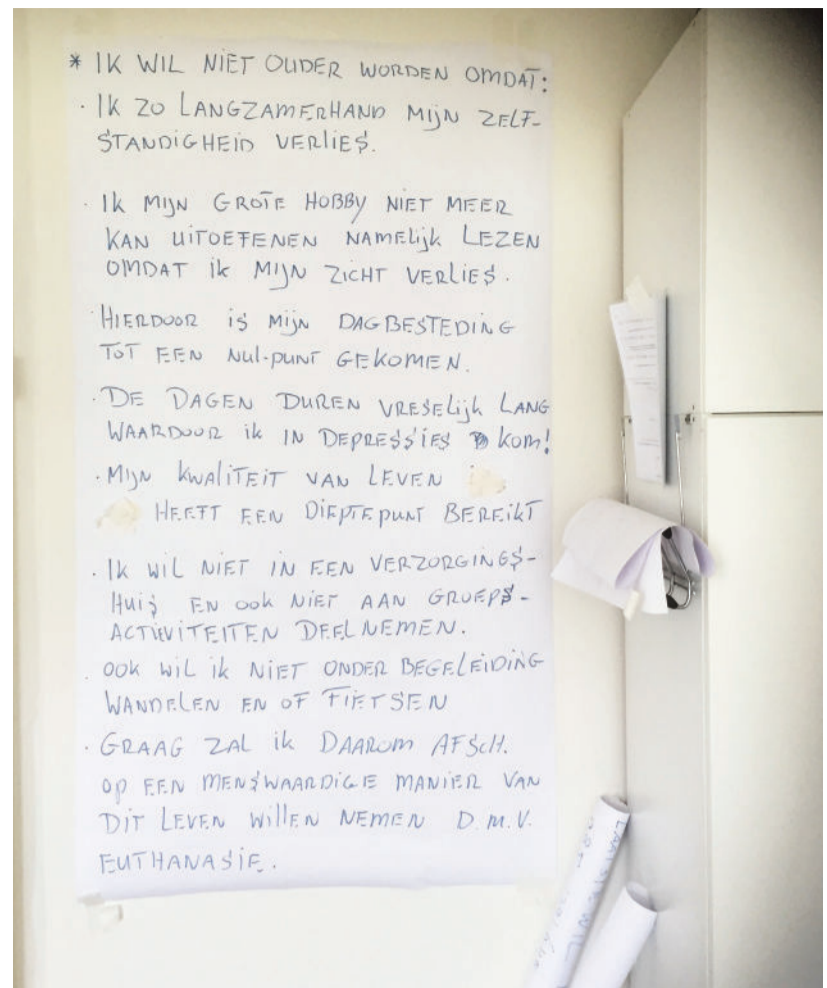 * IK WIL NIET OUDER WORDEN OMDAT:
· IK ZO LANGZAMERHAND MIJN ZELF-
STANDIGHEID VERLIES.
· IK MIJN GROTE HOBBY NIET MEER
KAN UITOEFENEN NAMELIJK LEZEN
OMDAT IK MIJN ZICHT VERLIES.
· HIERDOOR IS MIJN DAGBESTEDING
TOT EEN NUL-PUNT GEKOMEN.
· DE DAGEN DUREN VRESELIJK LANG
WAARDOOR IK IN DEPRESSIES KOM!
· MIJN KWALITEIT VAN LEVEN
HEEFT EEN DIEPTEPUNT BEREIKT
· IK WIL NIET IN EEN VERZORGINGS-
HUIS EN OOK NIET AAN GROEPS-
ACTIVITEITEN DEELNEMEN.
· OOK WIL IK NIET ONDER BEGELEIDING
WANDELEN EN OF FIETSEN
· GRAAG ZAL IK DAAROM AFSCH.
OP EEN MENSWAARDIGE MANIER VAN
DIT LEVEN WILLEN NEMEN D.M.V.
EUTHANASIE.